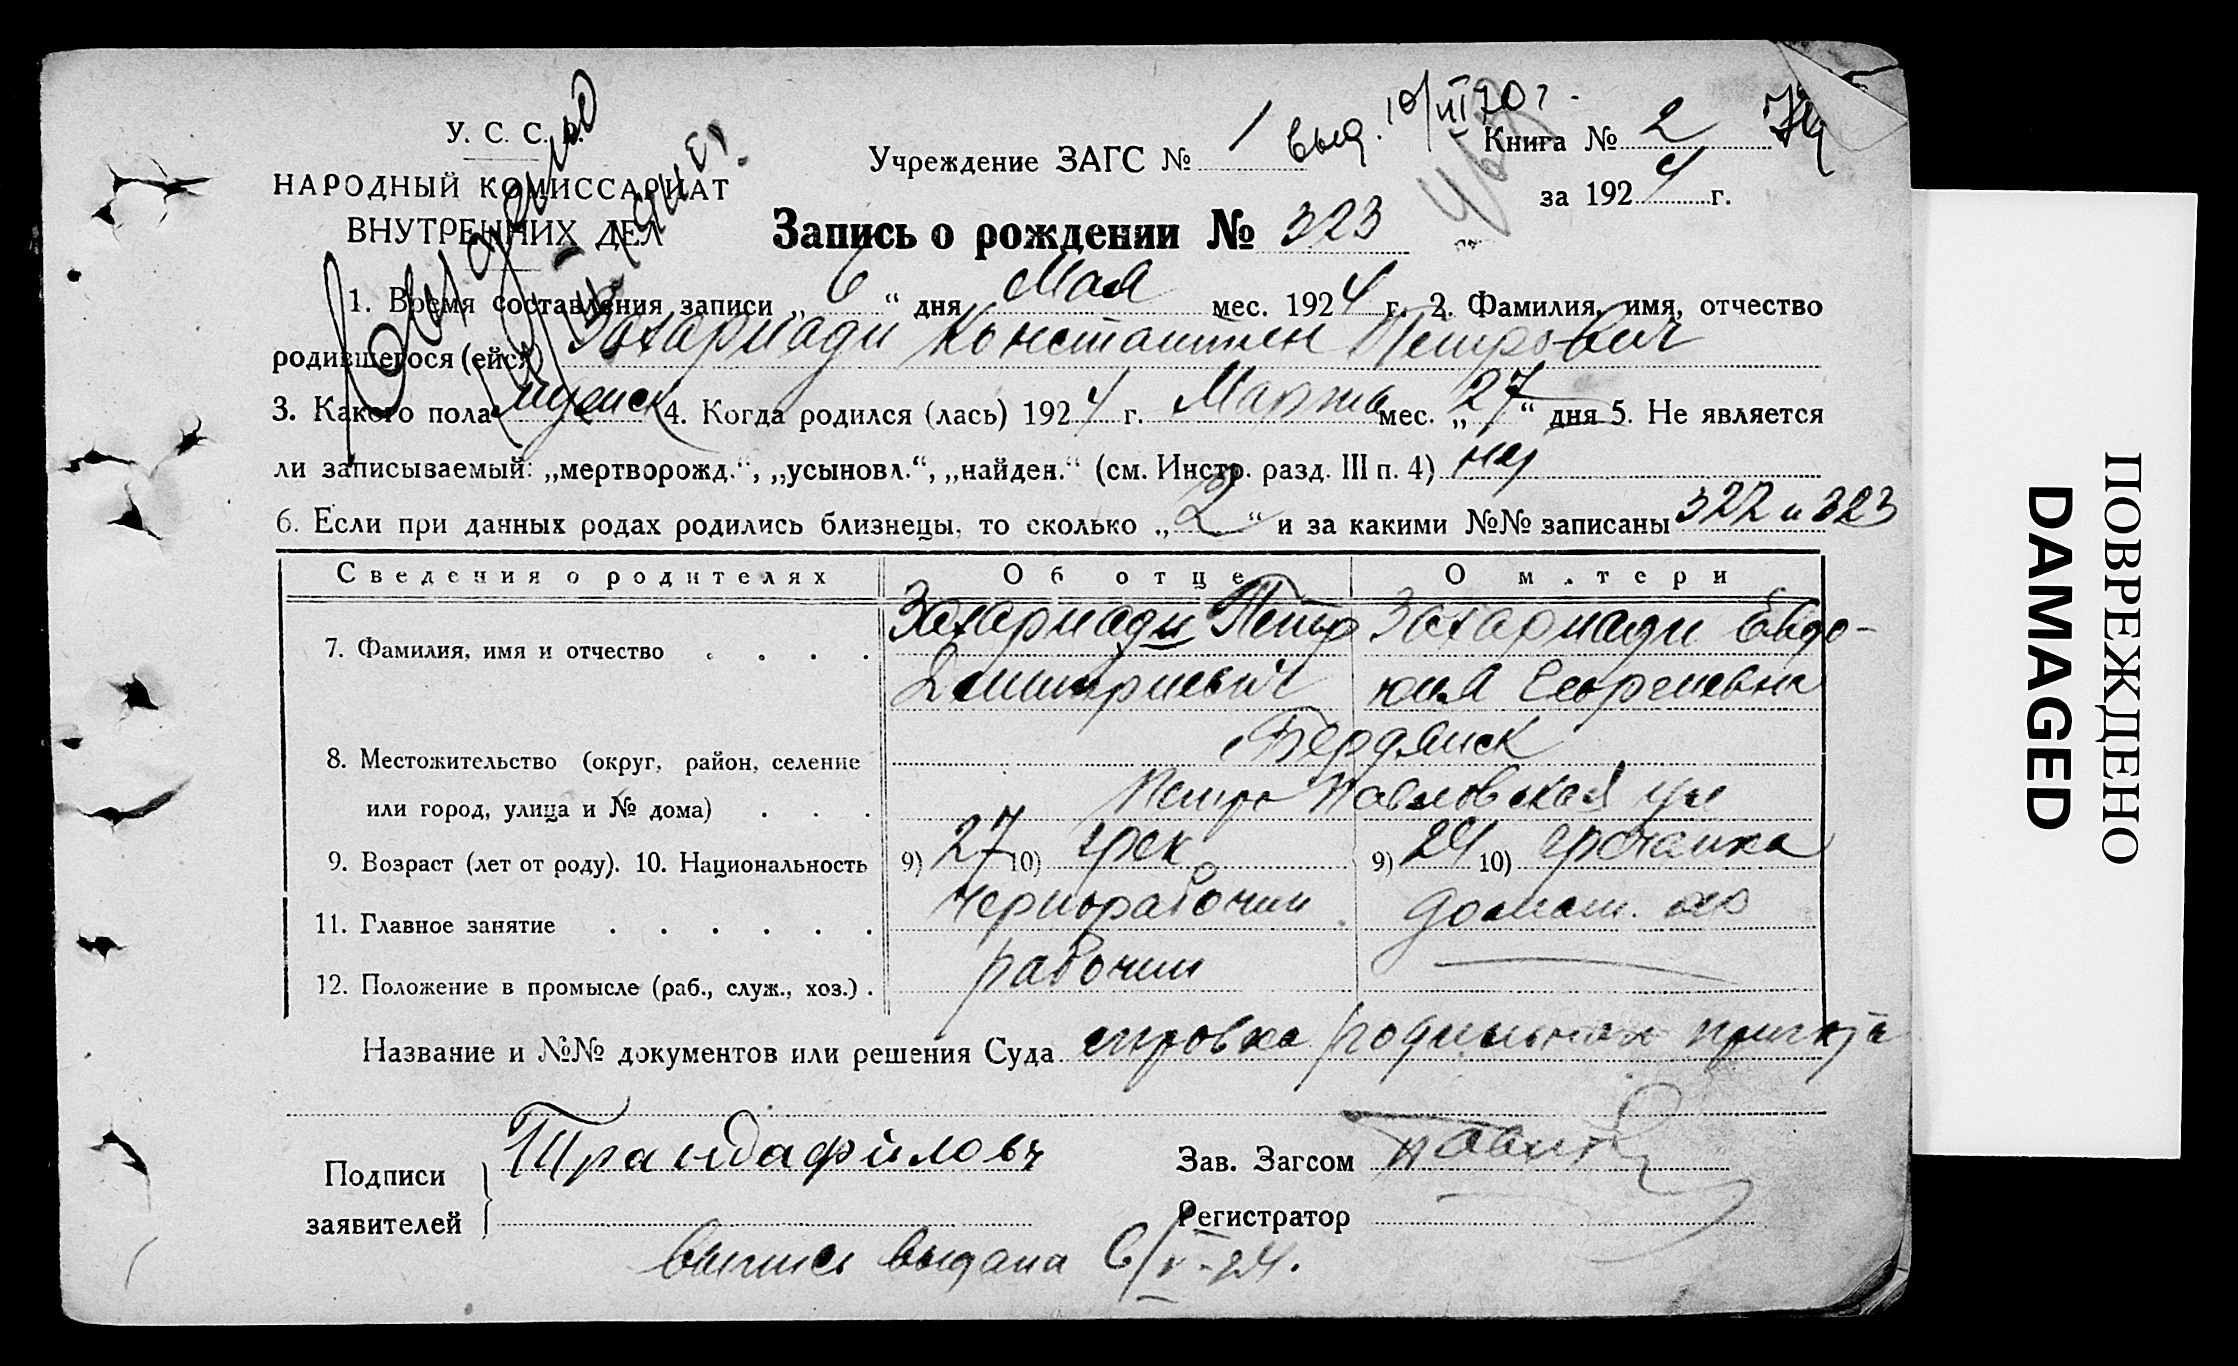 У. С. С. Р.
НАРОДНЫЙ КОМИССАРИАТ
ВНУТРЕННИХ ДЕЛ
Учреждение ЗАГС № 1 выд. 10/III 70 г.
Книга № 2
за 1924 г.
Запись о рождении № 323
1. Время составления записи „ 6 “ дня Мая мес. 1924 г. 2. Фамилия, имя, отчество
родившегося (ейся) Захариади Константин Петрович
3. Какого пола мужск 4. Когда родился (лась) 1924 г. Марта мес. „ 27 “ дня 5. Не является
ли записываемый: „мертворожд.“, „усыновл.“, „найден.“ (см. Инстр. разд. III п. 4) нет
6. Если при данных родах родились близнецы, то сколько „ 2 “ и за какими №№ записаны 322 и 323
Сведения о родителях Об отце О матери
7. Фамилия, имя и отчество . . . . Захариади Петр Захариади Евдо-
Дмитриевич кия Георгиевна
8. Местожительство (округ, район, селение Бердянск
или город, улица и № дома) . . . Петро Павловская ул
9. Возраст (лет от роду). 10. Национальность 9) 27 10) грек 9) 24 10) гречанка
11. Главное занятие . . . . . . Чернорабочий домаш. хоз
12. Положение в промысле (раб., служ., хоз.) . рабочий
Название и №№ документов или решения Суда справка родильного приюта
Подписи
заявителей
Трандафиловъ
Зав. Загсом
Регистратор
выпись выдана 6/V-24.
ПОВРЕЖДЕНО
DAMAGED